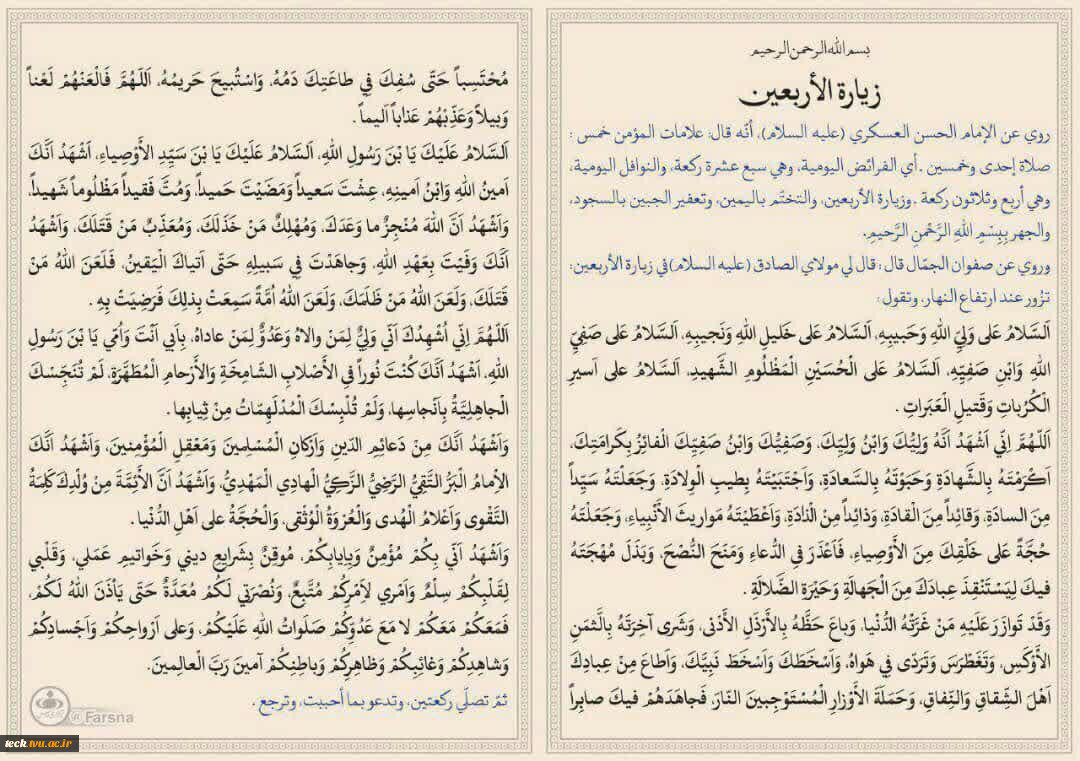 بسم الله الرحمن الرحيم
زيارة الأربعين
روي عن الإمام الحسن العسكري (عليه السلام)، أنّه قال: علامات المؤمن خمس :
صلاة إحدى وخمسين . أي الفرائض اليومية، وهي سبع عشرة ركعة، والنوافل اليومية،
وهي أربع وثلاثون ركعة . وزيارة الأربعين، والتختّم باليمين، وتعفير الجبين بالسجود،
والجهر بِبِسْمِ اللهِ الرَّحْمنِ الرَّحيمِ.
وروي عن صفوان الجمّال قال : قال لي مولاي الصادق (عليه السلام) في زيارة الأربعين:
تزُور عند ارتفاع النهار، وتقول:
اَلسَّلامُ عَلى وَلِيِّ اللهِ وَحَبيبِهِ، اَلسَّلامُ عَلى خَليلِ اللهِ وَنَجيبِهِ، اَلسَّلامُ عَلى صَفِيِّ
اللهِ وَابْنِ صَفِيِّهِ، اَلسَّلامُ عَلى الْحُسَيْنِ الْمَظْلُومِ الشَّهيدِ، اَلسَّلامُ على اَسيرِ
الْكُرُباتِ وَقَتيلِ الْعَبَراتِ .
اَللّهُمَّ اِنّي اَشْهَدُ اَنَّهُ وَلِيُّكَ وَابْنُ وَلِيِّكَ، وَصَفِيُّكَ وَابْنُ صَفِيِّكَ الْفائِزُ بِكَرامَتِكَ،
اَكْرَمْتَهُ بِالشَّهادَةِ وَحَبَوْتَهُ بِالسَّعادَةِ، وَاَجْتَبَيْتَهُ بِطيبِ الْوِلادَةِ، وَجَعَلْتَهُ سَيِّداً
مِنَ السادَةِ، وَقائِداً مِنَ الْقادَةِ، وَذائِداً مِنْ الْذادَةِ، وَاَعْطَيْتَهُ مَواريثَ الأَنْبِياءِ، وَجَعَلْتَهُ
حُجَّةً عَلى خَلْقِكَ مِنَ الأَوْصِياءِ، فَاَعْذَرَ فىِ الدُّعاءِ وَمَنَحَ النُّصْحَ، وَبَذَلَ مُهْجَتَهُ
فيكَ لِيَسْتَنْقِذَ عِبادَكَ مِنَ الْجَهالَةِ وَحَيْرَةِ الضَّلالَةِ .
وَقَدْ تَوازَرَ عَلَيْهِ مَنْ غَرَّتْهُ الدُّنْيا، وَباعَ حَظَّهُ بِالأَرْذَلِ الأَدْنى، وَشَرى آخِرَتَهُ بِالَّثمَنِ
الأَوْكَسِ، وَتَغَطْرَسَ وَتَرَدّى فِي هَواهُ، وَاَسْخَطَكَ وَاَسْخَطَ نَبِيَّكَ، وَاَطاعَ مِنْ عِبادِكَ
اَهْلَ الشِّقاقِ وَالنِّفاقِ، وَحَمَلَةَ الأَوْزارِ الْمُسْتَوْجِبينَ النّارَ، فَجاهَدَهُمْ فيكَ صابِراً
مُحْتَسِباً حَتّى سُفِكَ فِي طاعَتِكَ دَمُهُ، وَاسْتُبيحَ حَريمُهُ، اَللّهُمَّ فَالْعَنْهُمْ لَعْناً
وَبيلاً وَعَذِّبْهُمْ عَذاباً اَليماً .
اَلسَّلامُ عَلَيْكَ يَا بْنَ رَسُولِ اللهِ، اَلسَّلامُ عَلَيْكَ يَا بْنَ سَيِّدِ الأَوْصِياءِ، اَشْهَدُ اَنَّكَ
اَمينُ اللهِ وَابْنُ اَمينِهِ، عِشْتَ سَعيداً وَمَضَيْتَ حَميداً، وَمُتَّ فَقيداً مَظْلُوماً شَهيداً،
وَاَشْهَدُ اَنَّ اللهَ مُنْجِزٌ ما وَعَدَكَ، وَمُهْلِكٌ مَنْ خَذَلَكَ، وَمُعَذِّبٌ مَنْ قَتَلَكَ، وَاَشْهَدُ
اَنَّكَ وَفَيْتَ بِعَهْدِ اللهِ، وَجاهَدْتَ فِي سَبيلِهِ حَتّى اَتياكَ الْيَقينُ، فَلَعَنَ اللهُ مَنْ
قَتَلَكَ، وَلَعَنَ اللهُ مَنْ ظَلَمَكَ، وَلَعَنَ اللهُ اُمَّةً سَمِعَتْ بِذلِكَ فَرَضِيَتْ بِهِ .
اَللّهُمَّ اِنّي اُشْهِدُكَ اَنّي وَلِيٌّ لِمَنْ والاهُ وَعَدُوٌّ لِمَنْ عاداهُ، بِاَبي اَنْتَ وَاُمّي يَا بْنَ رَسُولِ
اللهِ، اَشْهَدُ اَنَّكَ كُنْتَ نُوراً فىِ الأَصْلابِ الشّامِخَةِ وَالأَرْحامِ الْمُطَهَّرَةِ، لَمْ تُنَجِّسْكَ
الْجاهِلِيَّةُ بِاَنْجاسِها، وَلَمْ تُلْبِسْكَ الْمُدْلَهِمّاتُ مِنْ ثِيابِها .
وَاَشْهَدُ اَنَّكَ مِنْ دَعائِمِ الدّينِ وَاَرْكانِ الْمُسْلِمينَ وَمَعْقِلِ الْمُؤْمِنينَ، وَاَشْهَدُ اَنَّكَ
الإمامُ الْبَرُّ التَّقِيُّ الرَّضِيُّ الزَّكِيُّ الْهادِي الْمَهْدِيُّ، وَاَشْهَدُ اَنَّ الأَئِمَّةَ مِنْ وُلْدِكَ كَلِمَةُ
التَّقْوى وَاَعْلامُ الْهُدى وَالْعُرْوَةُ الْوُثْقى، وَالْحُجَّةُ على اَهْلِ الدُّنْيا .
وَاَشْهَدُ اَنّي بِكُمْ مُؤْمِنٌ وَبِاِيابِكُمْ، مُوقِنٌ بِشَرايِعِ ديني وَخَواتيمِ عَمَلي، وَقَلْبي
لِقَلْبِكُمْ سِلْمٌ وَاَمْري لاَِمْرِكُمْ مُتَّبِعٌ، وَنُصْرَتي لَكُمْ مُعَدَّةٌ حَتّى يَأْذَنَ اللهُ لَكُمْ،
فَمَعَكُمْ مَعَكُمْ لا مَعَ عَدُوِّكُمْ صَلَواتُ اللهِ عَلَيْكُمْ، وَعلى اَرْواحِكُمْ وَاَجْسادِكُمْ
وَشاهِدِكُمْ وَغائِبِكُمْ وَظاهِرِكُمْ وَباطِنِكُمْ آمينَ رَبَّ الْعالِمينَ.
ثمّ تصلّي ركعتين، وتدعو بما أحببت، وترجع .
@Farsna
teck.tvu.ac.ir